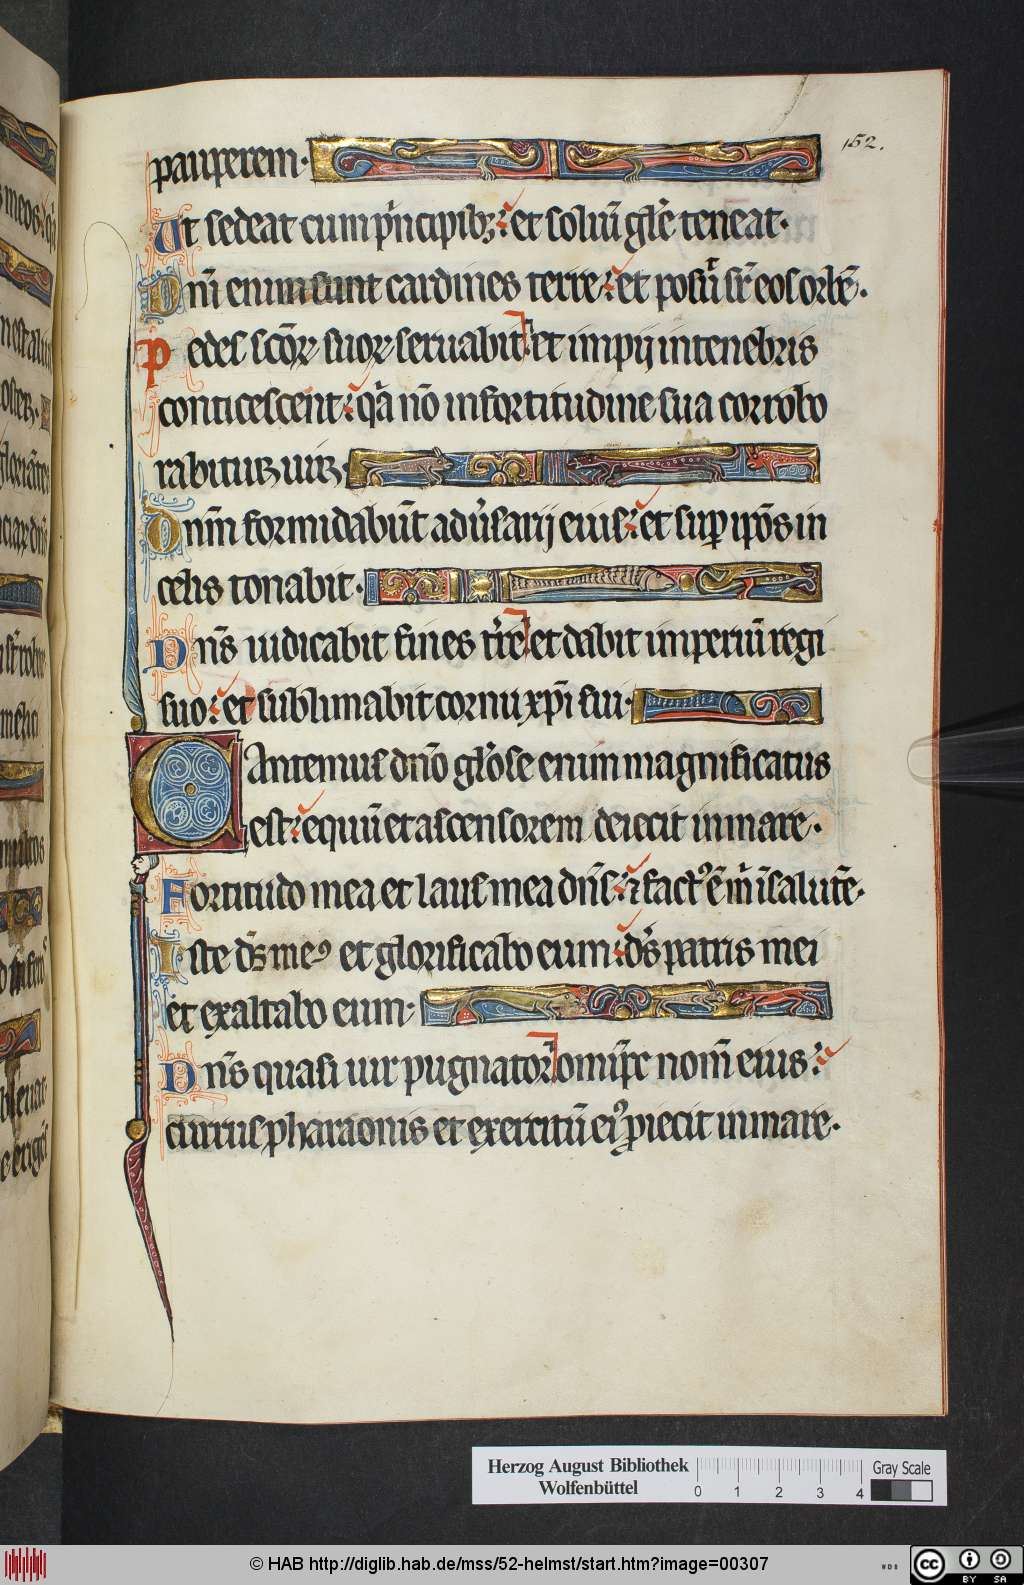 152.
pauperem·
Ut sedeat cum p̓ncipib₃: et soliū gl̄e teneat·
Dn̄i enim sunt cardines terre: et posuit sr̄ eos orbē·
Pedes sc̄oꝝ suoꝝ seruabit: et impij in tenebris
conticescent: q̓a nō in fortitudine sua corrobo
rabitur uir·
Dnm̄ formidabūt adu̓sarij eius: et suꝑ ip̄os in
celis tonabit·
Dn̄s iudicabit fines t̓re et dabit imperiū regi
suo: et sublimabit cornu xp̄i sui·
Cantemus dn̄o gl̓ose enim magnificatus
est: equū et ascensorem deiecit in mare·
Fortitudo mea et laus mea dn̄s: ⁊ factꝰ ē m̓ ī salutē·
Iste ds̄ meꝰ et glorificabo eum: ds̄ patris mei
et exaltabo eum·
Dn̄s quasi uir pugnator: omip̄c nom̄ eius:
currus pharaonis et exercitū eiꝰ ꝓiecit in mare·
Herzog August Bibliothek
Wolfenbüttel
0 1 2 3 4
Gray Scale
© HAB http://diglib.hab.de/mss/52-helmst/start.htm?image=00307
cc BY SA